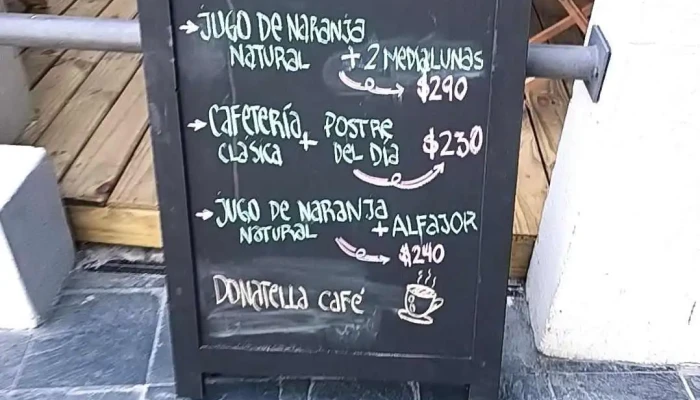 →JUGO DE NARANJA
NATURAL + 2 MEDIALUNAS
$290
→CAFETERÍA + POSTRE
CLÁSICA DEL DÍA $230
→JUGO DE NARANJA
NATURAL + ALFAJOR
$240
DONATELLA CAFÉ